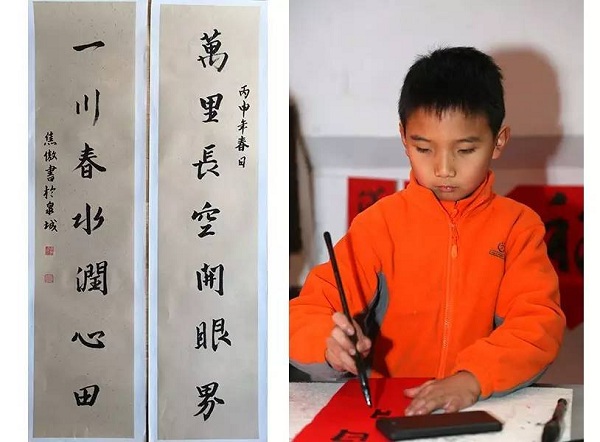 丙申年春日
萬里長空開眼界
一川春水潤心田
焦傲書於泉城